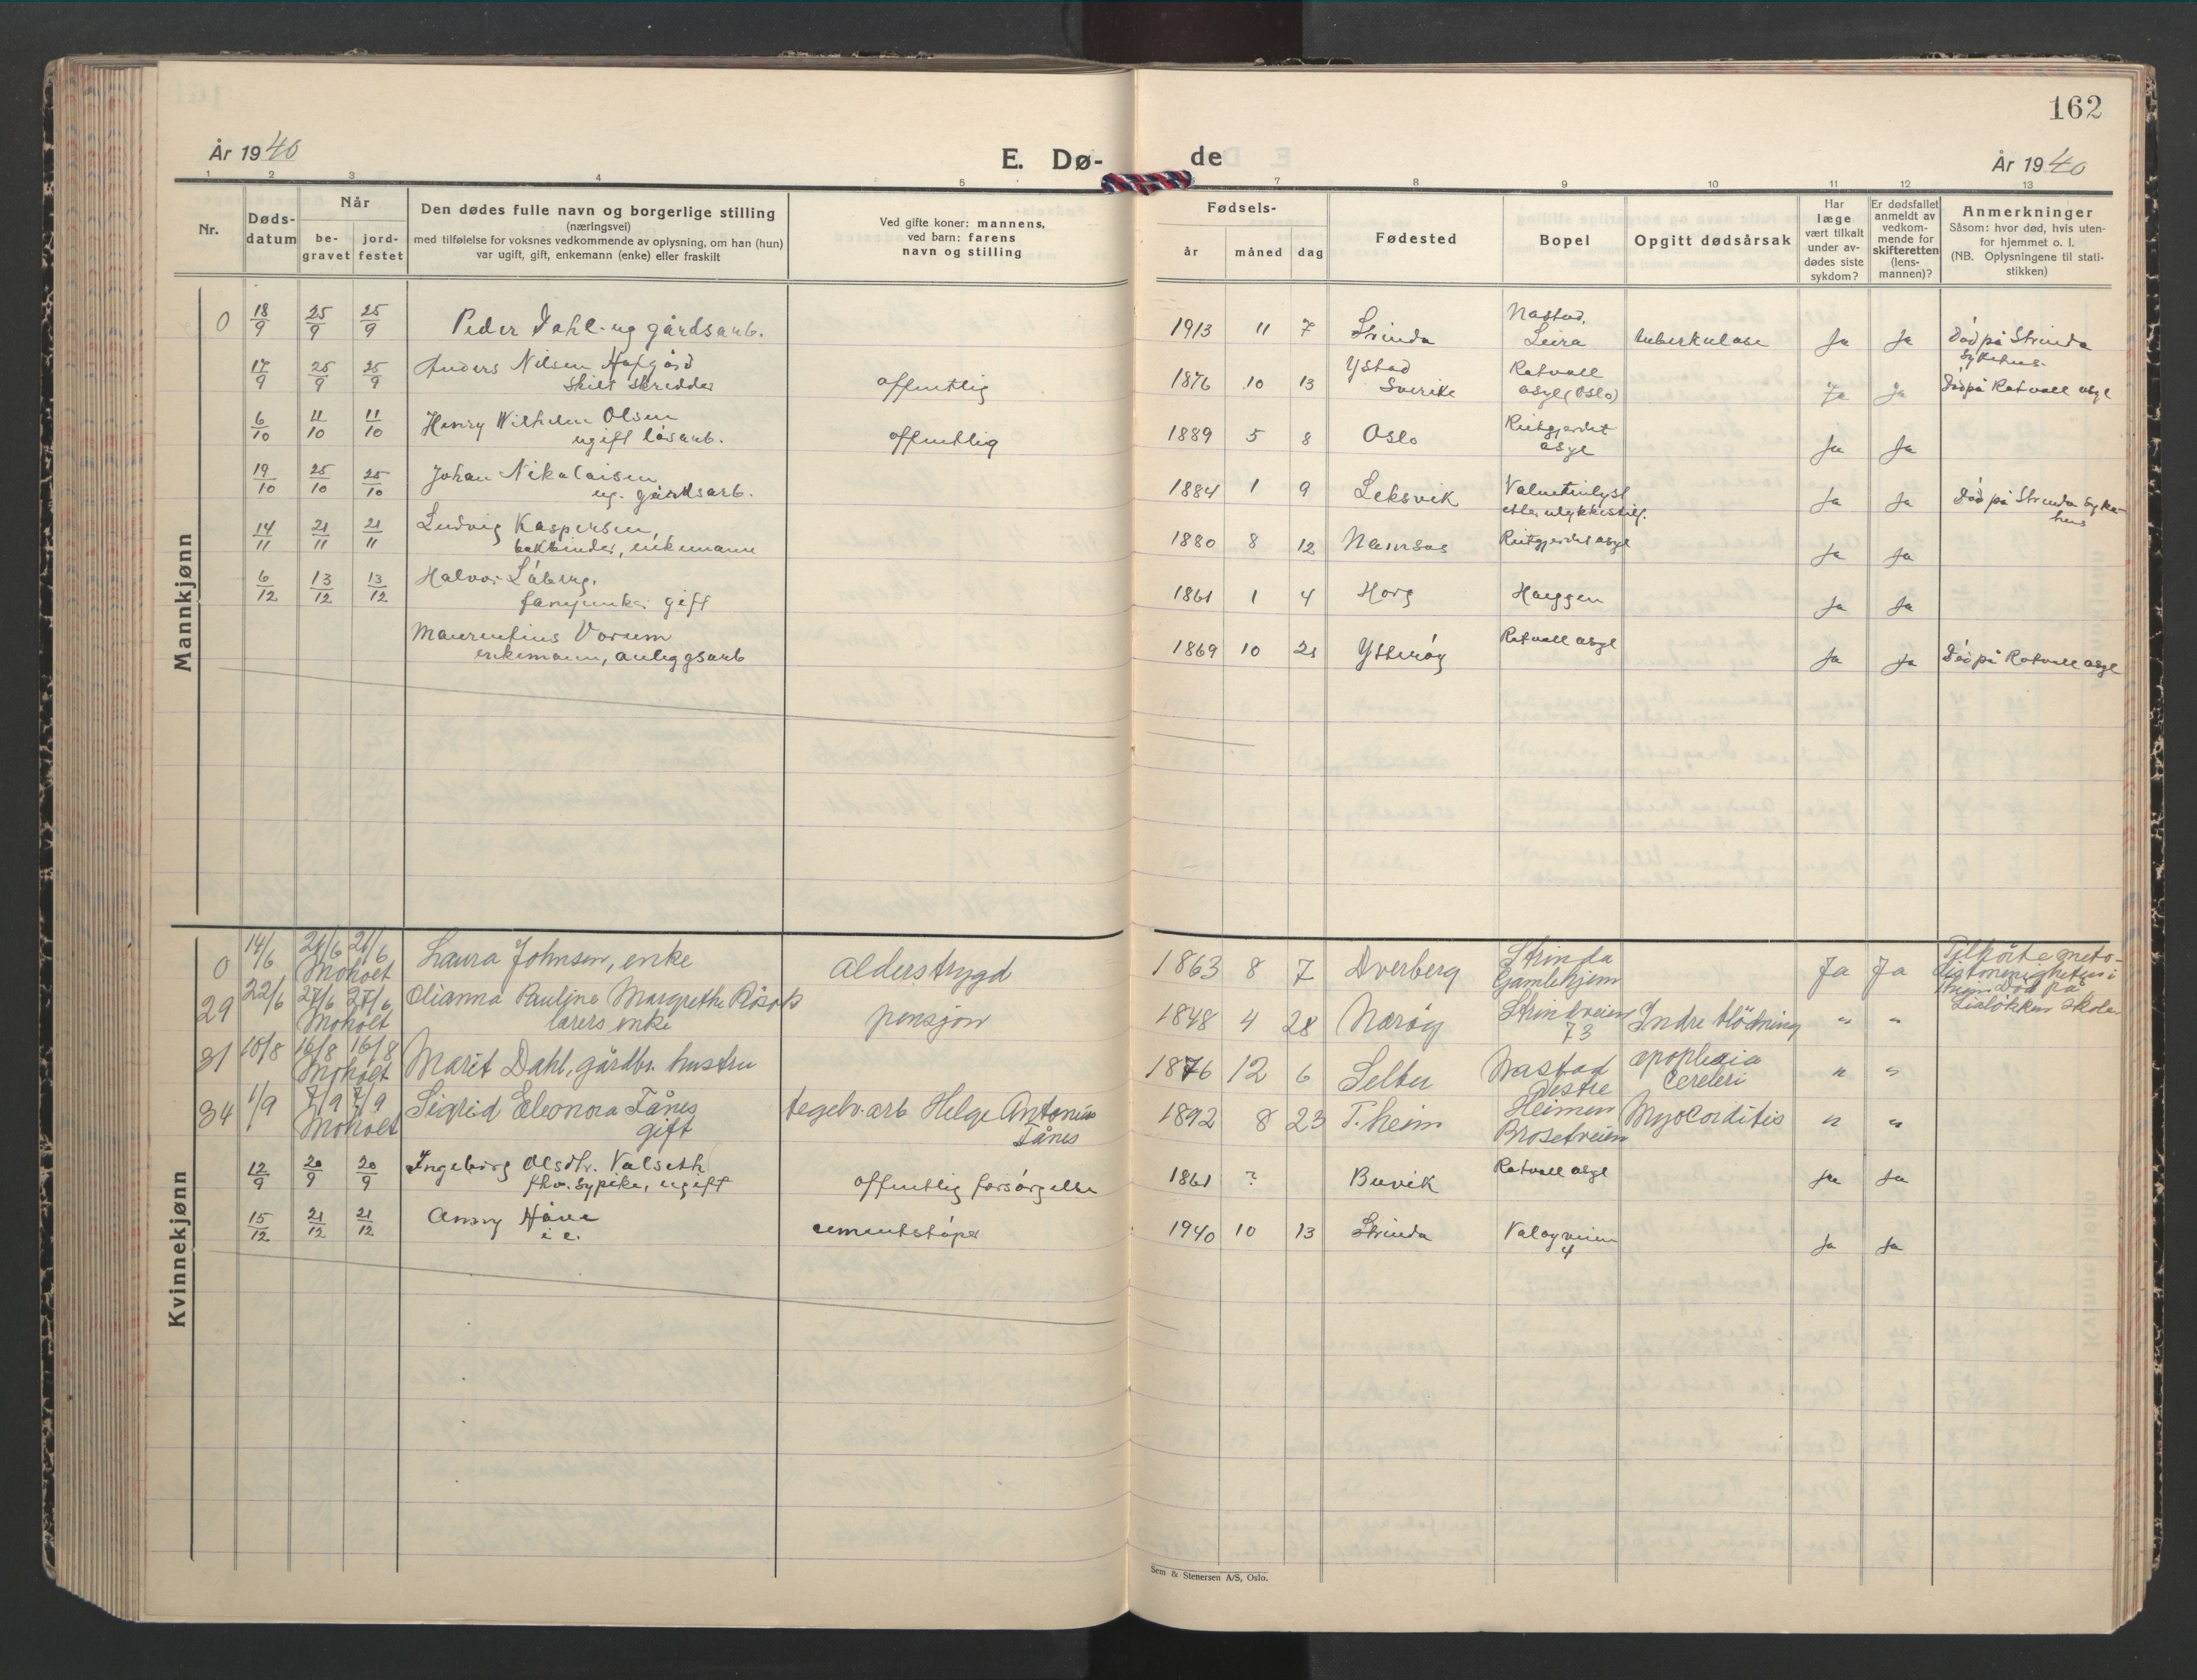 162
År 1940
E. Dø-
de
År 1940
1 2 3 4 5 6 7 8 9 10 11 12 13
Nr.
Døds-
datum
Når
be-
gravet
jord-
festet
Den dødes fulle navn og borgerlige stilling
(næringsvei)
med tilføielse for voksnes vedkommende av oplysning, om han (hun)
var ugift, gift, enkemann (enke) eller fraskilt
Ved gifte koner: mannens,
ved barn: farens
navn og stilling
Fødsels-
år måned dag
Fødested
Bopel
Opgitt dødsårsak
Har
læge
vært tilkalt
under av-
dødes siste
sykdom?
Er dødsfallet
anmeldt av
vedkom-
mende for
skifteretten
(lens-
mannen)?
Anmerkninger
Såsom: hvor død, hvis uten-
for hjemmet o. l.
(NB. Oplysningene til stati-
stikken)
Mannkjønn
0 18/9 25/9 25/9 Peder Dahl. ug gårdsarb. 1913 11 7 Strinda Nastad, Leira tuberkulose Ja Ja Død på Strinda
sykehus.
17/9 25/9 25/9 Anders Nilsen
skilt skredder offentlig 1876 10 13 Ystad Sverike Rotvoll
asyl (Oslo) Ja Ja Død på Rotvoll asyl
6/10 11/10 11/10 Henry Wilhelm Olsen
ugift løsarb. offentlig 1889 5 8 Oslo Reitgjerdet
asyl Ja Ja
19/10 25/10 25/10 Johan Nikolaisen
ug. gårdsarb. 1884 1 9 Leksvik Valentinlyst
Ja Ja Død på Strinda syke-
hus
14/11 21/11 21/11 Ludvig Kaspersen,
bokbinder, enkemann 1880 8 12 Namsos Reitgjerdet asyl Ja Ja
6/12 13/12 13/12 Halvor
fanejunker gift 1861 1 4 Horg Haeggen Ja Ja
Maurentius Vorum
enkemann, anleggsarb 1869 10 21 Ytterøy Rotvoll asyl Ja Ja Død på Rotvoll asyl
Kvinnekjønn
0 14/6 21/6 21/6
Moholt Laura Johnsen, enke alderstrygd 1863 8 7 Dverberg Strinda
Gamlehjem Ja Ja Tilhørte meto-
distmenigheten i
T.heim Død på
skole
29 22/6 27/6 27/6
Moholt Olianna Pauline Margrethe
lærers enke pensjon 1848 4 28 Nærøy Strindveien
73 Indre blødning " "
31 10/8 16/8 16/8
Moholt Marit Dahl, gårdbr. hustru 1876 12 6 Selbu Nastad
Vestre apoplexia
cereleri " "
34 1/9 7/9 7/9
Moholt Sigrid Eleonora Tånes
gift teglv. arb Helge Antonius
Tånes 1892 8 23 T.heim Heimen
Brosetveien Myocorditis " "
12/9 20/9 20/9 Ingeborg Olsdtr. Valseth
fhv. sypike, ugift offentlig forsørgelse 1861 ? Buvik Rotvoll asyl Ja Ja
15/12 21/12 21/12 Anny Håve
i e. cementstøper 1940 10 13 Strinda Valøyveien
4 Ja Ja
Sem & Stenersen A/S, Oslo.